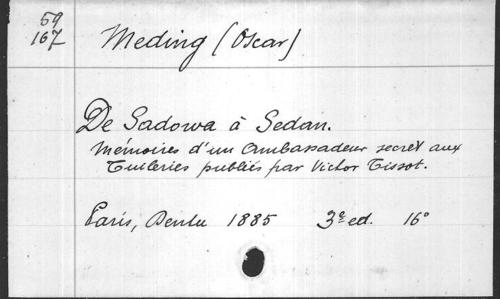 59
167
Meding (Oscar)
De Sadowa à Sedan.
Mémoires d'un Ambassadeur secret aux
Tuileries publiés par Victor Tissot.
Paris, Dentu 1885 3e ed. 16°